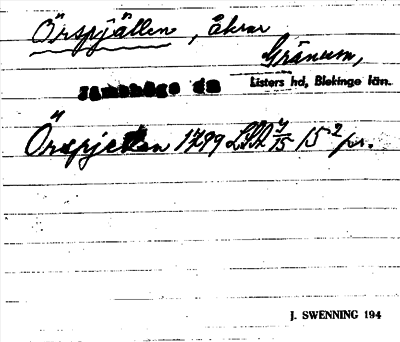 Örspjällen, åkrar
Gränum,
Jämshögs sn Listers hd, Blekinge län.
Örspjellen 1789 LSA 7/15 15² pr.
J. SWENNING 194